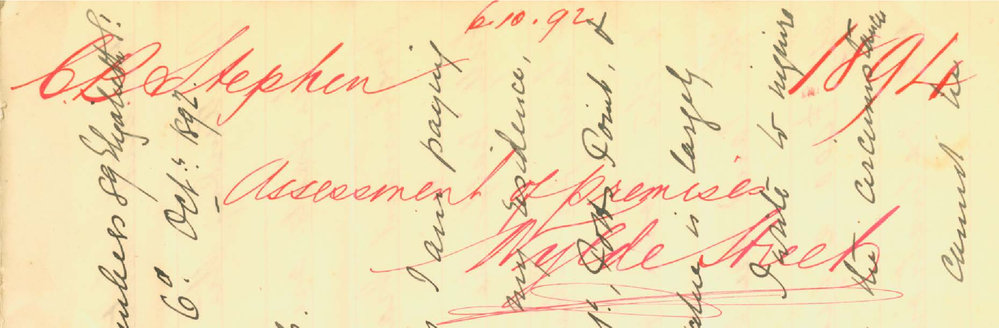 6.10.92
C B Stephen 1894
Assessment of premises
Wylde Street
89 Elizabeth St.
6th Oct. 1892
I am paying
my residence,
Potts Point, &
is largely
I write to inquire
the circumstances
cannot be